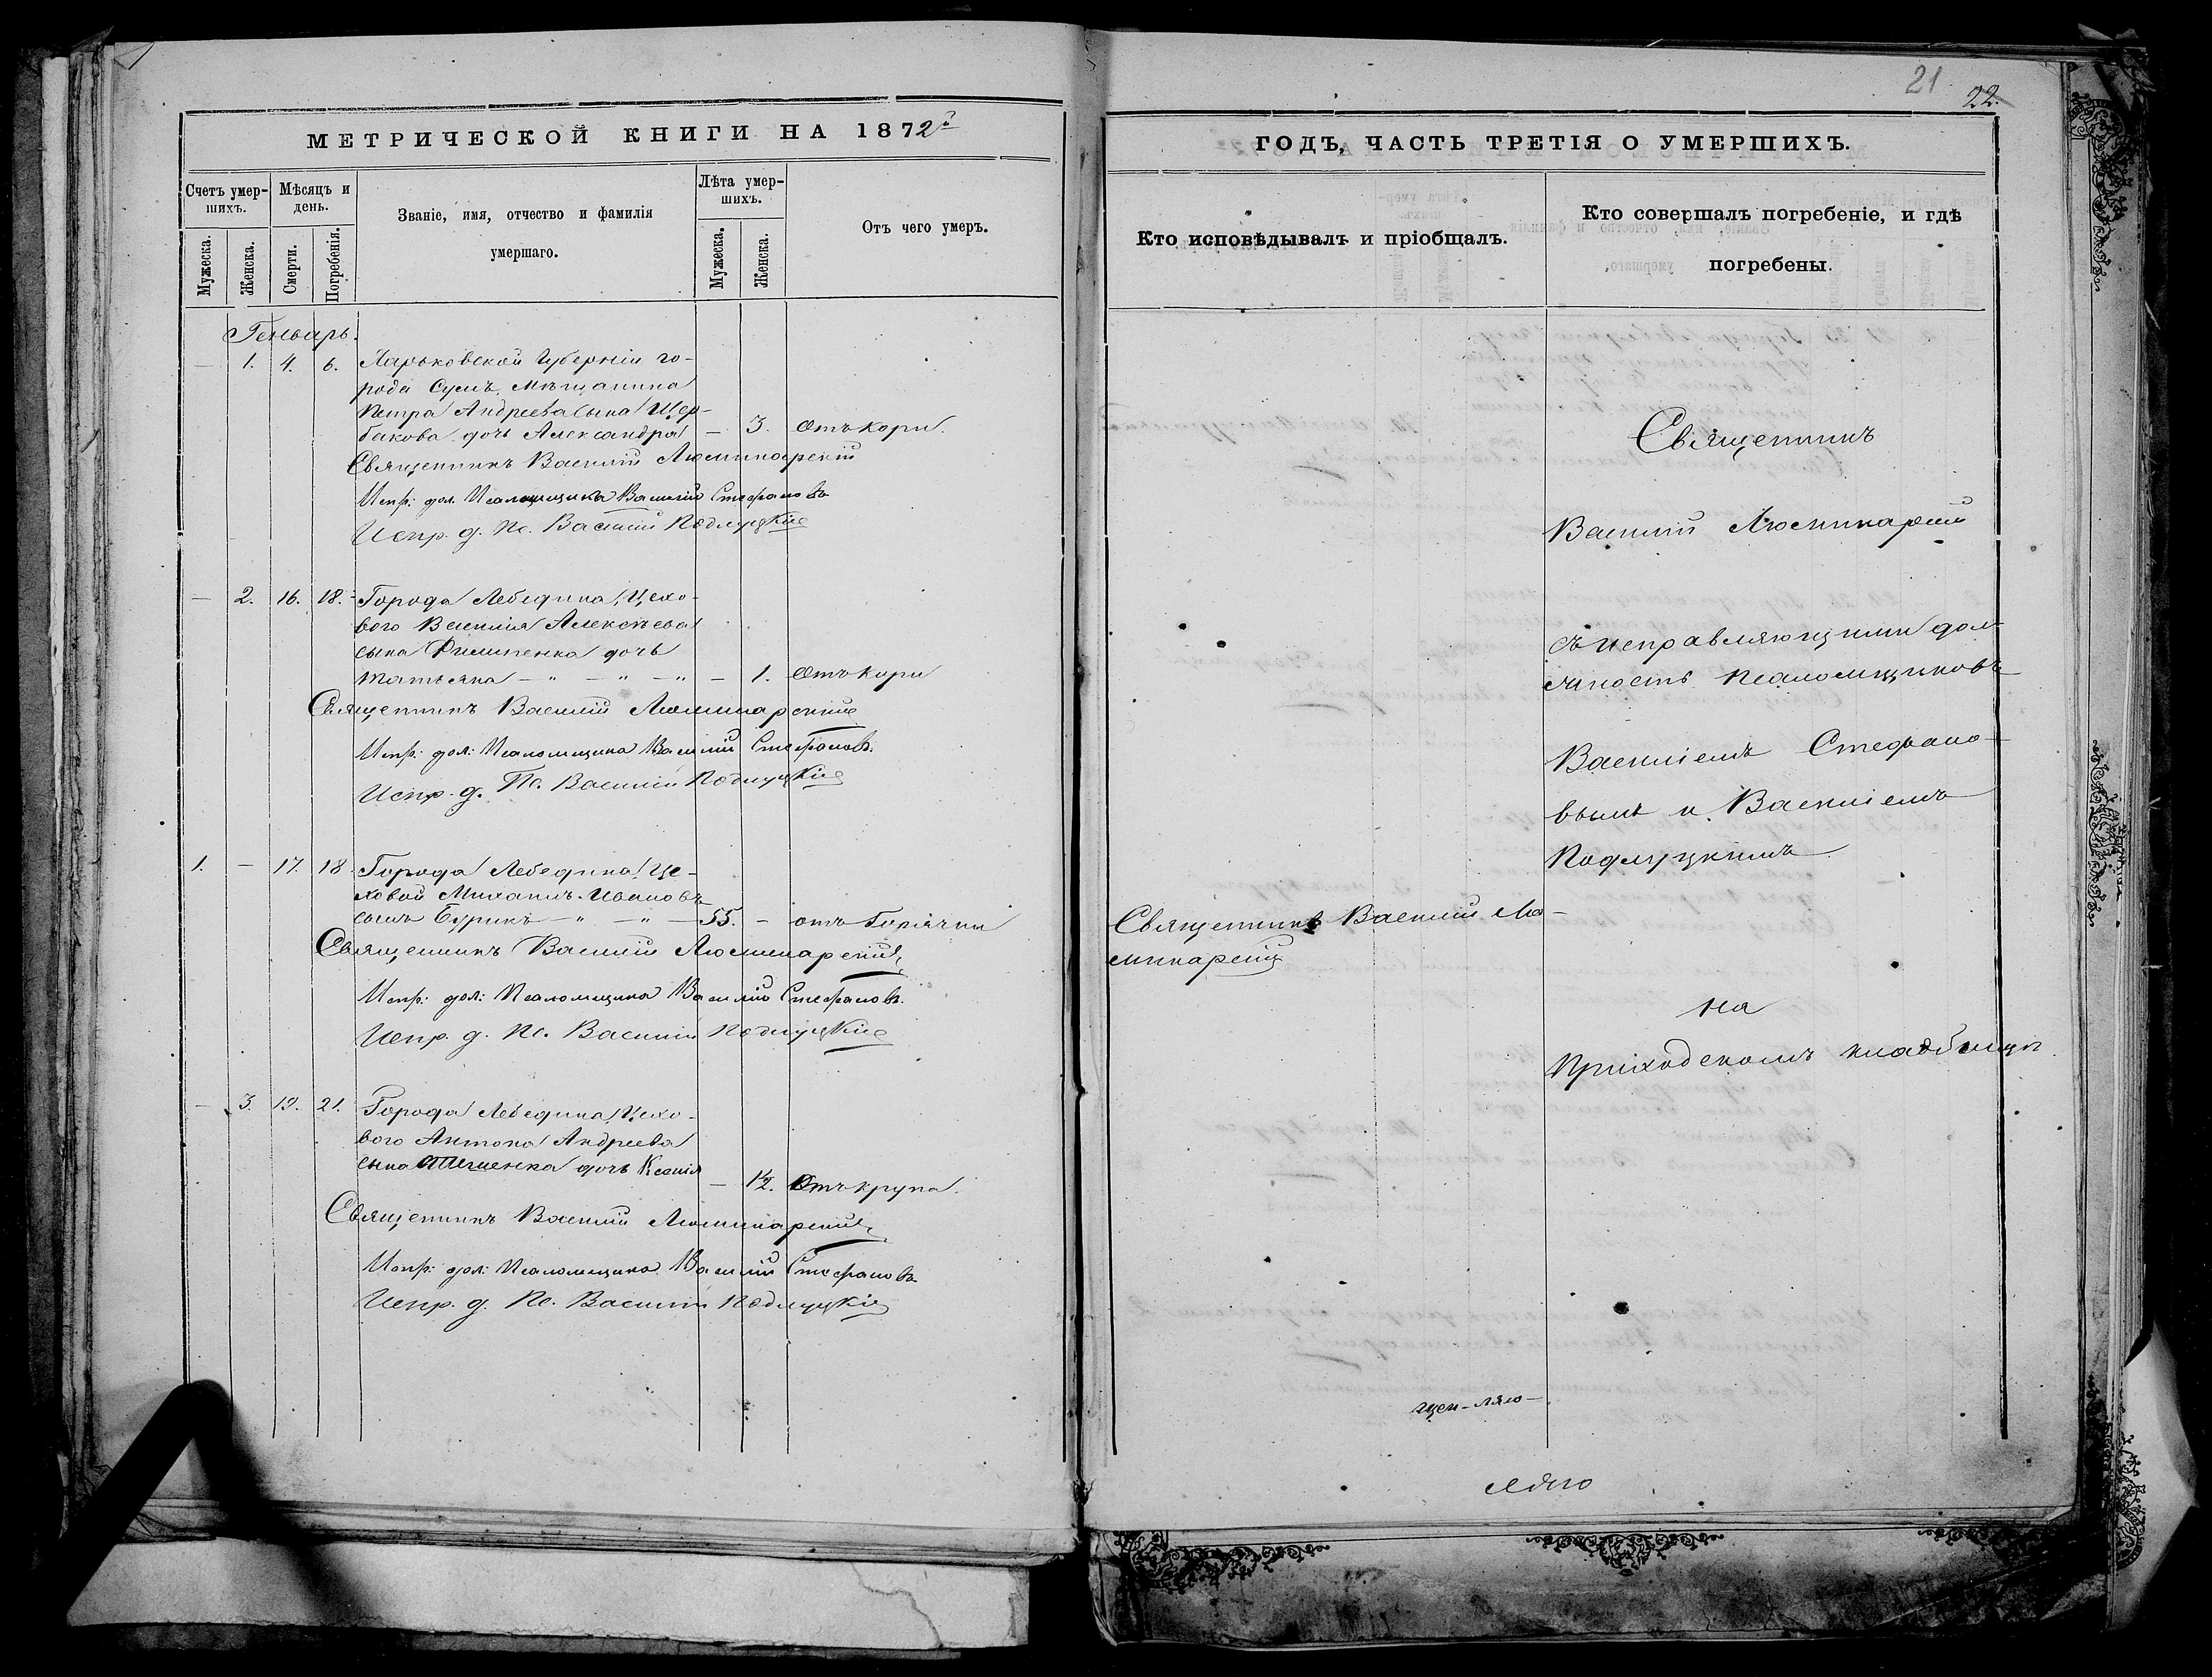 МЕТРИЧЕСКОЙ КНИГИ НА 1872й
Счетъ умершихъ.
Мѣсяцъ и день.
Званіе, имя, отчество и фамилія
умершаго.
Лѣта умершихъ.
Отъ чего умеръ.
Мужеска.
Женска.
Смерти.
Погребенія.
Мужеска.
Женска.
Генварь.
— 1. 4. 6. Харьковской Губерніи го-
рода Сумъ, Мѣщанина
Петра Андреева сына Щер-
бакова дочь Александра — 3. Отъ кори.
Священникъ Василій Люминарскій
Испр: дол. Псаломщика Василій Стефановъ
Испр. д. Пс. Василій Подлуцкій
— 2. 16. 18. Города Лебедина, Цехо-
вого Василія Алексѣева
сына Филипенка дочь
Татьяна — " — " — " — 1. Отъ кори
Священникъ Василій Люминарскій
Испр: дол: Псаломщика Василій Стефановъ.
Испр. д. Пс. Василій Подлуцкій
1. — 17. 18. Города Лебедина, Це-
ховой Михаилъ Ивановъ
сынъ Бурикъ — " — " — 55. — отъ Горячки
Священникъ Василій Люминарскій
Испр: дол: Псаломщика Василій Стефановъ.
Испр. д. Пс. Василій Подлуцкій
— 3. 19. 21. Города Лебедина, Цехо-
вого Антона Андреева
сына дочь Ксенія
— 1/2. Отъ крупа.
Священникъ Василій Люминарскій
Испр: дол: Псаломщика Василій Стефановъ
Испр. д. Пс. Василій Подлуцкій
21
22.
ГОДЪ, ЧАСТЬ ТРЕТІЯ О УМЕРШИХЪ.
Кто исповѣдывалъ и пріобщалъ.
Кто совершалъ погребеніе, и гдѣ
погребены.
Священникъ
Василій Люминарскій
съ исправляющими дол-
жность псаломщиковъ
Василіемъ Стефано-
вымъ и Василіемъ
Подлуцкимъ
Священникъ Василій Лю-
минарскій
на
Приходскомъ кладбищѣ.